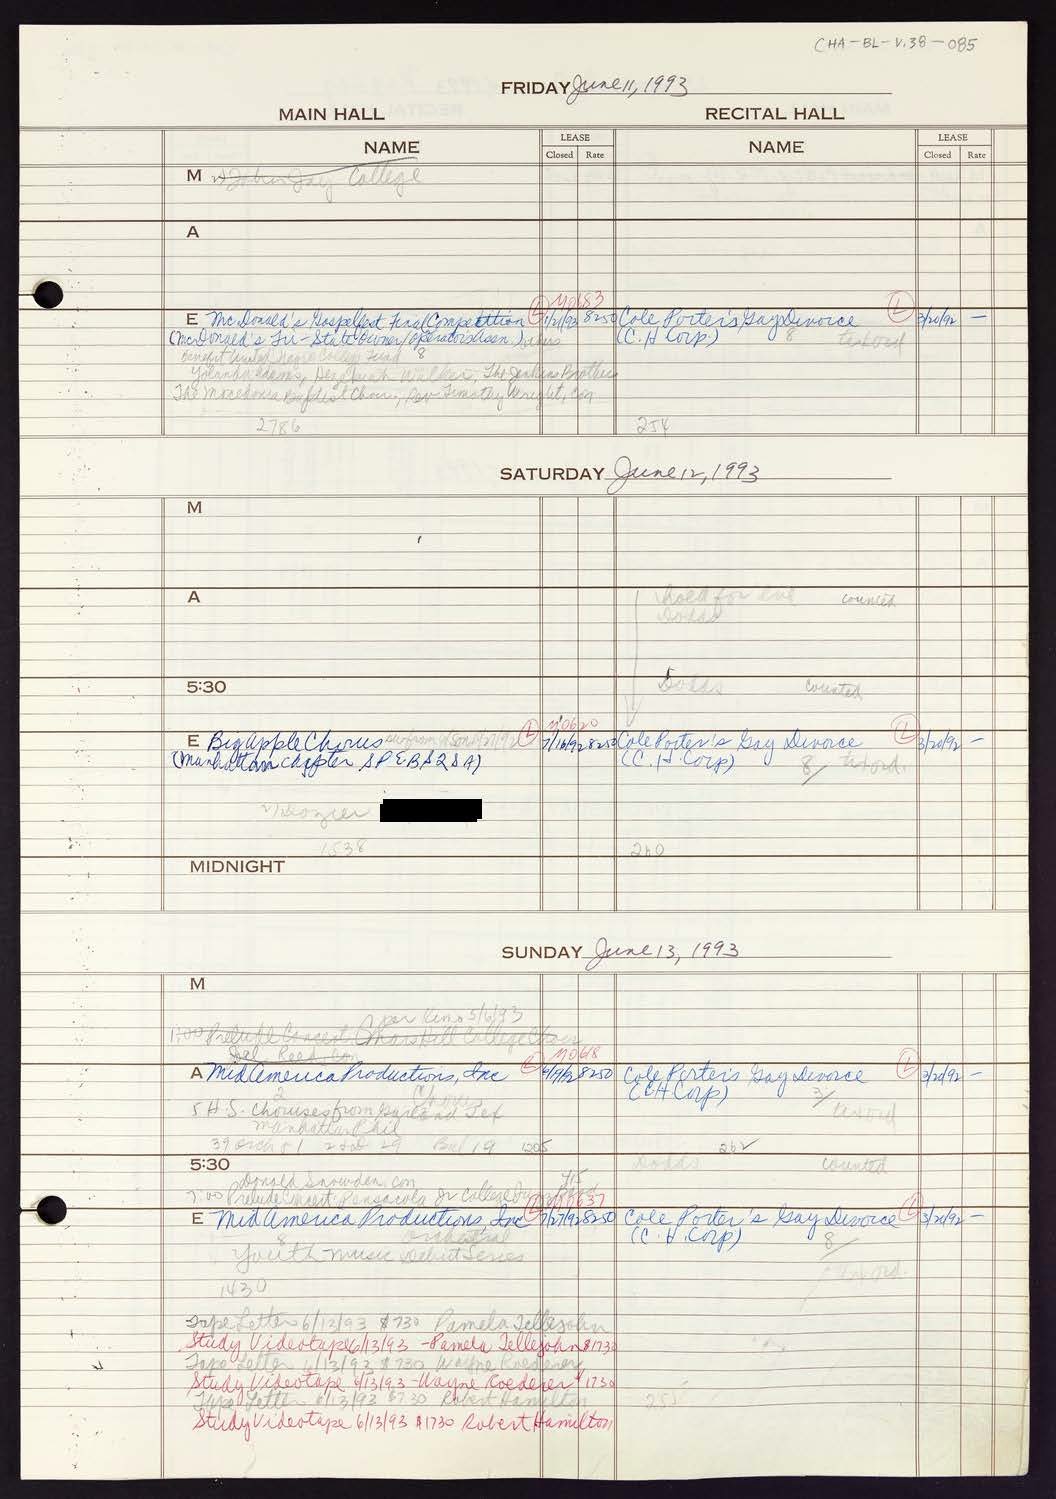 CHA-BL-V.38-085
FRIDAY June 11, 1993
MAIN HALL RECITAL HALL
NAME LEASE Closed Rate NAME LEASE Closed Rate
M John Jay College
A
M0683
E McDonald's Gospelfest Final Competition L 1/21/92 8250 Cole Porter's Gay Divorce L 3/20/92 —
(McDonald's Tri-State Owner/Operators Assn.) (C. H Corp.) 8
Benefit United Negro College Fund 8
Yolanda Adams, Hezekiah Walker, The Jenkins Brothers
The Macedonia Baptist Choir, Rev Timothy Wright, con
2786 254
SATURDAY June 12, 1993
M
A hold for eve counted
Dodds
5:30 Dodds counted
M0620
E Big Apple Chorus L 7/16/92 8250 Cole Porter's Gay Divorce L 3/20/92 —
(Manhattan chapter SPEBSQSA) (C. H. Corp) 8/
1538 260
MIDNIGHT
SUNDAY June 13, 1993
M
per Kimo 5/6/93
1:00 Prelude Concert Mars Hill College Choir
Joel Reed, con
M0618
A MidAmerica Productions, Inc L 6/9/92 8250 Cole Porter's Gay Divorce L 3/20/92 —
2 Chorus (CH Corp) 3/
5 H.S. Choruses from Garland Tex
Manhattan Phil
39 Orch 51 2nd 29 Bal 19 1205 262
5:30 Dodds counted
Donald Snowden, con
7:00 Prelude Concert: Pensacola Jr College
M0637
E MidAmerica Productions, Inc L 7/27/92 8250 Cole Porter's Gay Divorce L 3/20/92 —
8 Orchestral (C. H. Corp) 8/
Youth Music Debut Series
1430
Tape Letter 6/12/93 $730 Pamela Tellejohn
Study Videotape 6/13/93 - Pamela Tellejohn $1730
Tape Letter 6/13/93 $730 Wayne Roederer
Study Videotape 6/13/93 - Wayne Roederer $1730
Tape Letter 6/13/93 $730 Robert Hamilton
255
Study Videotape 6/13/93 $1730 Robert Hamilton